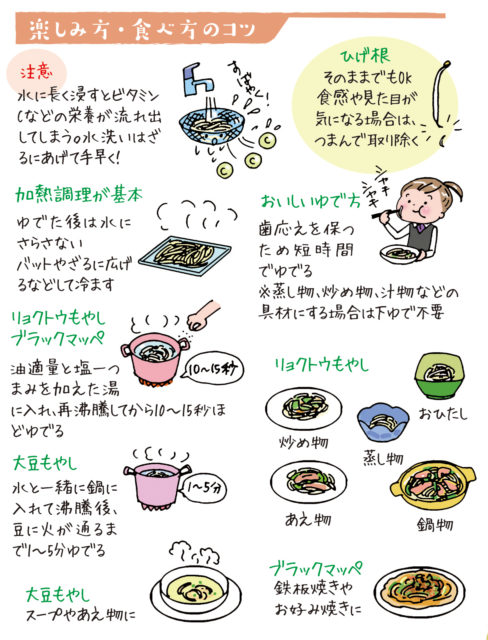 楽しみ方・食べ方のコツ
注意
水に長く浸すとビタミン
Cなどの栄養が流れ出
してしまう。水洗いはざ
るにあげて手早く!
すばやく!
C
C
C
ひげ根
そのままでもOK
食感や見た目が
気になる場合は、
つまんで取り除く
加熱調理が基本
ゆでた後は水に
さらさない
バットやざるに広げ
るなどして冷ます
おいしいゆで方
シャキ
シャキ
歯応えを保つ
ため短時間
でゆでる
※蒸し物、炒め物、汁物などの
具材にする場合は下ゆで不要
リョクトウもやし
ブラックマッペ
油適量と塩一つ
まみを加えた湯
に入れ、再沸騰してから10〜15秒ほ
どゆでる
10〜15秒
大豆もやし
水と一緒に鍋に
入れて沸騰後、
豆に火が通るま
で1〜5分ゆでる
1〜5分
大豆もやし
スープやあえ物に
リョクトウもやし
炒め物
蒸し物
おひたし
あえ物
鍋物
ブラックマッペ
鉄板焼きや
お好み焼きに